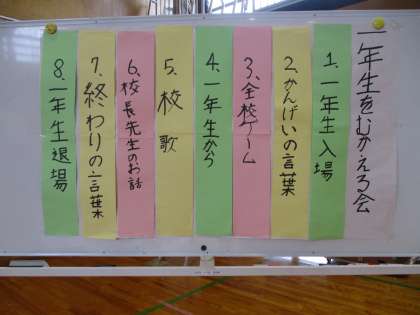 一年生をむかえる会
1、一年生入場
2、かんげいの言葉
3、全校ゲーム
4、一年生から
5、校歌
6、校長先生のお話
7、終わりの言葉
8、一年生退場